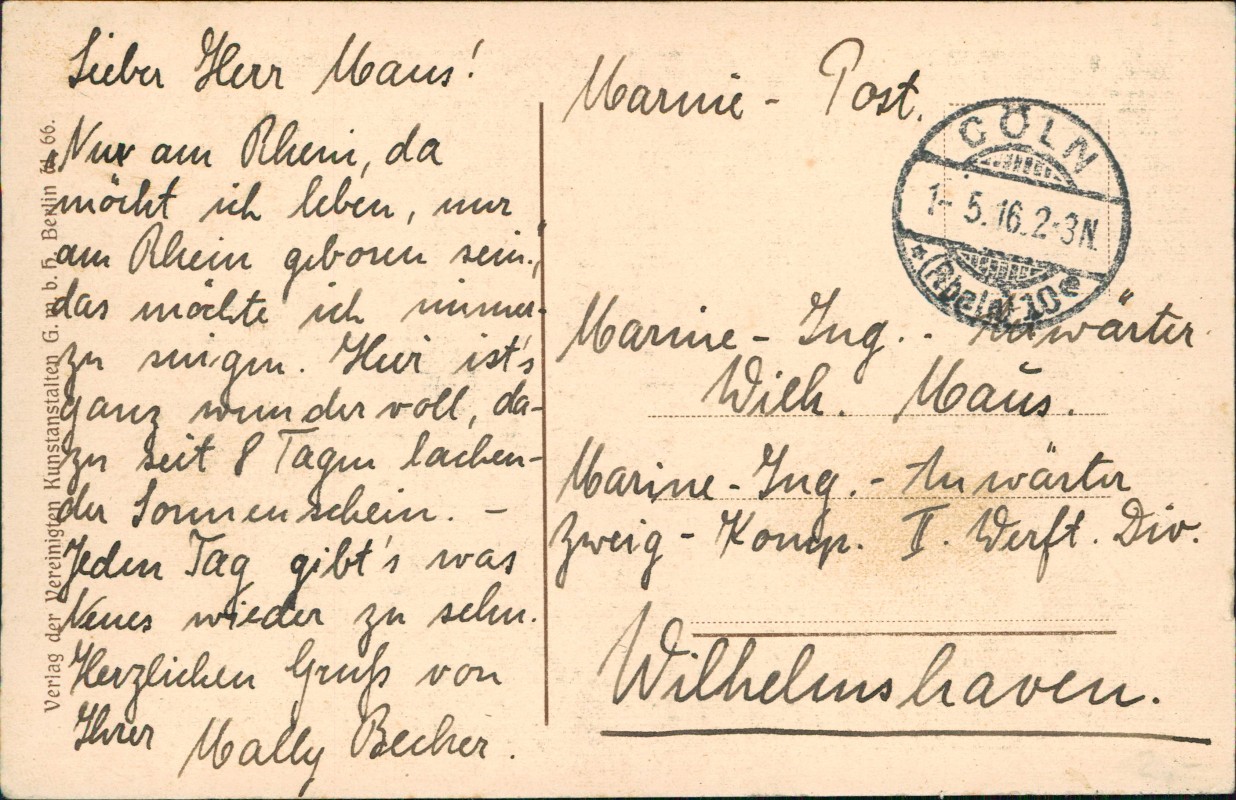 Lieber Herr Maus!
„Nur am Rhein, da
möcht ich leben, nur
am Rhein geboren sein.“
das möchte ich immer-
zu singen. Hier ist's
ganz wundervoll, da-
zu seit 8 Tagen lachen-
der Sonnenschein. –
Jeden Tag gibt's was
Neues wieder zu sehn.
Herzlichen Gruß von
Ihrer Mally Becher.
Verlag der Vereinigten Kunstanstalten G. m. b. H. Berlin W. 66.
Marine - Post.
CÖLN
1- 5.16.2-3N.
* (Rhein) 10 e
Marine - Ing. - Anwärter
Wilh. Maus.
Marine - Ing. - Anwärter
Zweig - Komp. II. Werft. Div.
Wilhelmshaven.